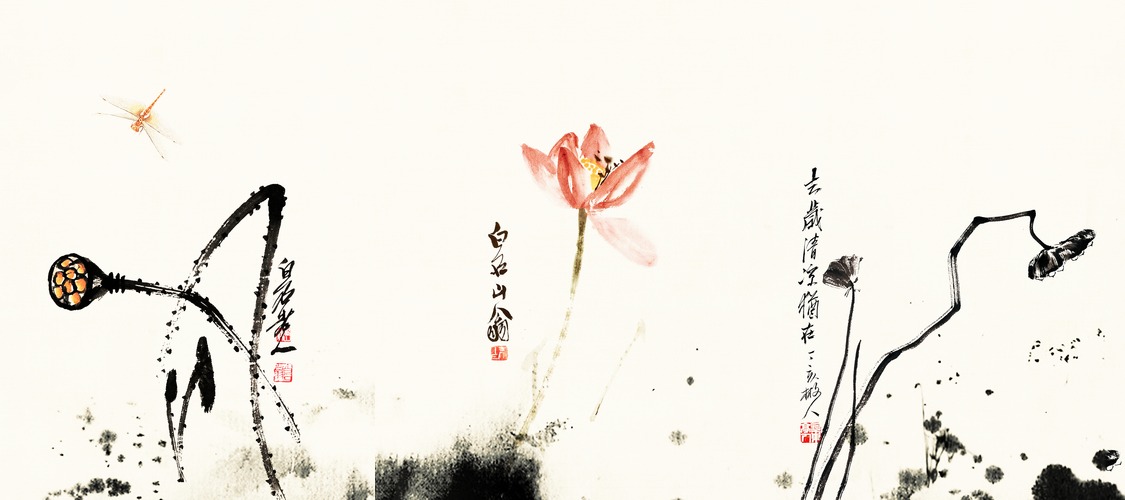 白石老人
白石山翁
去歲清涼猶在丁亥撇人